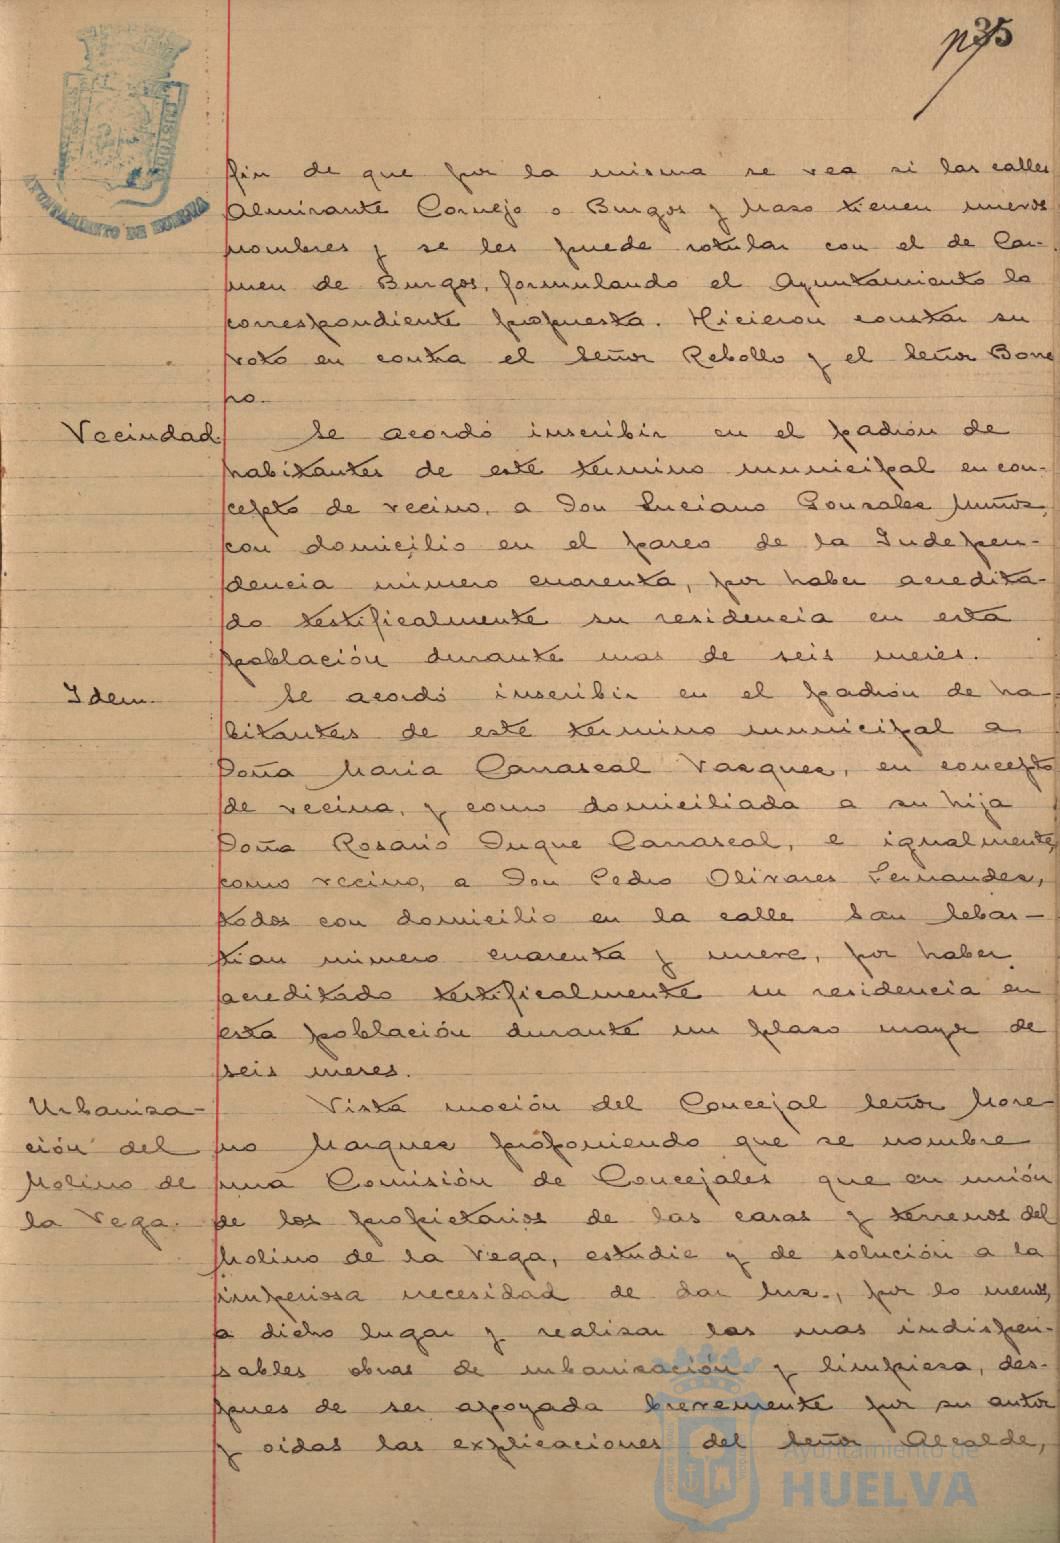 35
AYUNTAMIENTO DE HUELVA
fin de que por la misma se vea si las calles
Almirante Cornejo o Burgos y Mazo tienen nuevos
nombres y se les puede rotular con el de Car-
men de Burgos, formulando el Ayuntamiento la
correspondiente propuesta. Hicieron constar su
voto en contra el Señor Rebollo y el Señor Borre
ro.
Vecindad.
Se acordó inscribir en el padrón de
habitantes de este termino municipal en con-
cepto de vecino, a Don Luciano Gonzalez Muñoz,
con domicilio en el paseo de la Indepen-
dencia número cuarenta, por haber acredita-
do testificalmente su residencia en esta
población durante mas de seis meses.
Idem.
Se acordó inscribir en el padrón de ha-
bitantes de este termino municipal a
Doña Maria Carrascal Vazquez, en concepto
de vecina, y como domiciliada a su hija
Doña Rosario Duque Carrascal, e igualmente
como vecino, a Don Pedro Olivares Fernandez,
todos con domicilio en la calle San Sebas-
tian número cuarenta y nueve, por haber
acreditado testificalmente su residencia en
esta población durante un plazo mayor de
seis meses.
Urbaniza-
ción del
Molino de
la Vega.
Vista moción del Concejal Señor More
no Marquez proponiendo que se nombre
una Comisión de Concejales que en unión
de los propietarios de las casas y terrenos del
Molino de la Vega, estudie y de solución a la
imperiosa necesidad de dar luz, por lo menos,
a dicho lugar y realizar las mas indispen-
sables obras de urbanización y limpieza, des-
pues de ser apoyada brevemente por su autor
y oidas las explicaciones del Señor Alcalde,
Ayuntamiento de
HUELVA